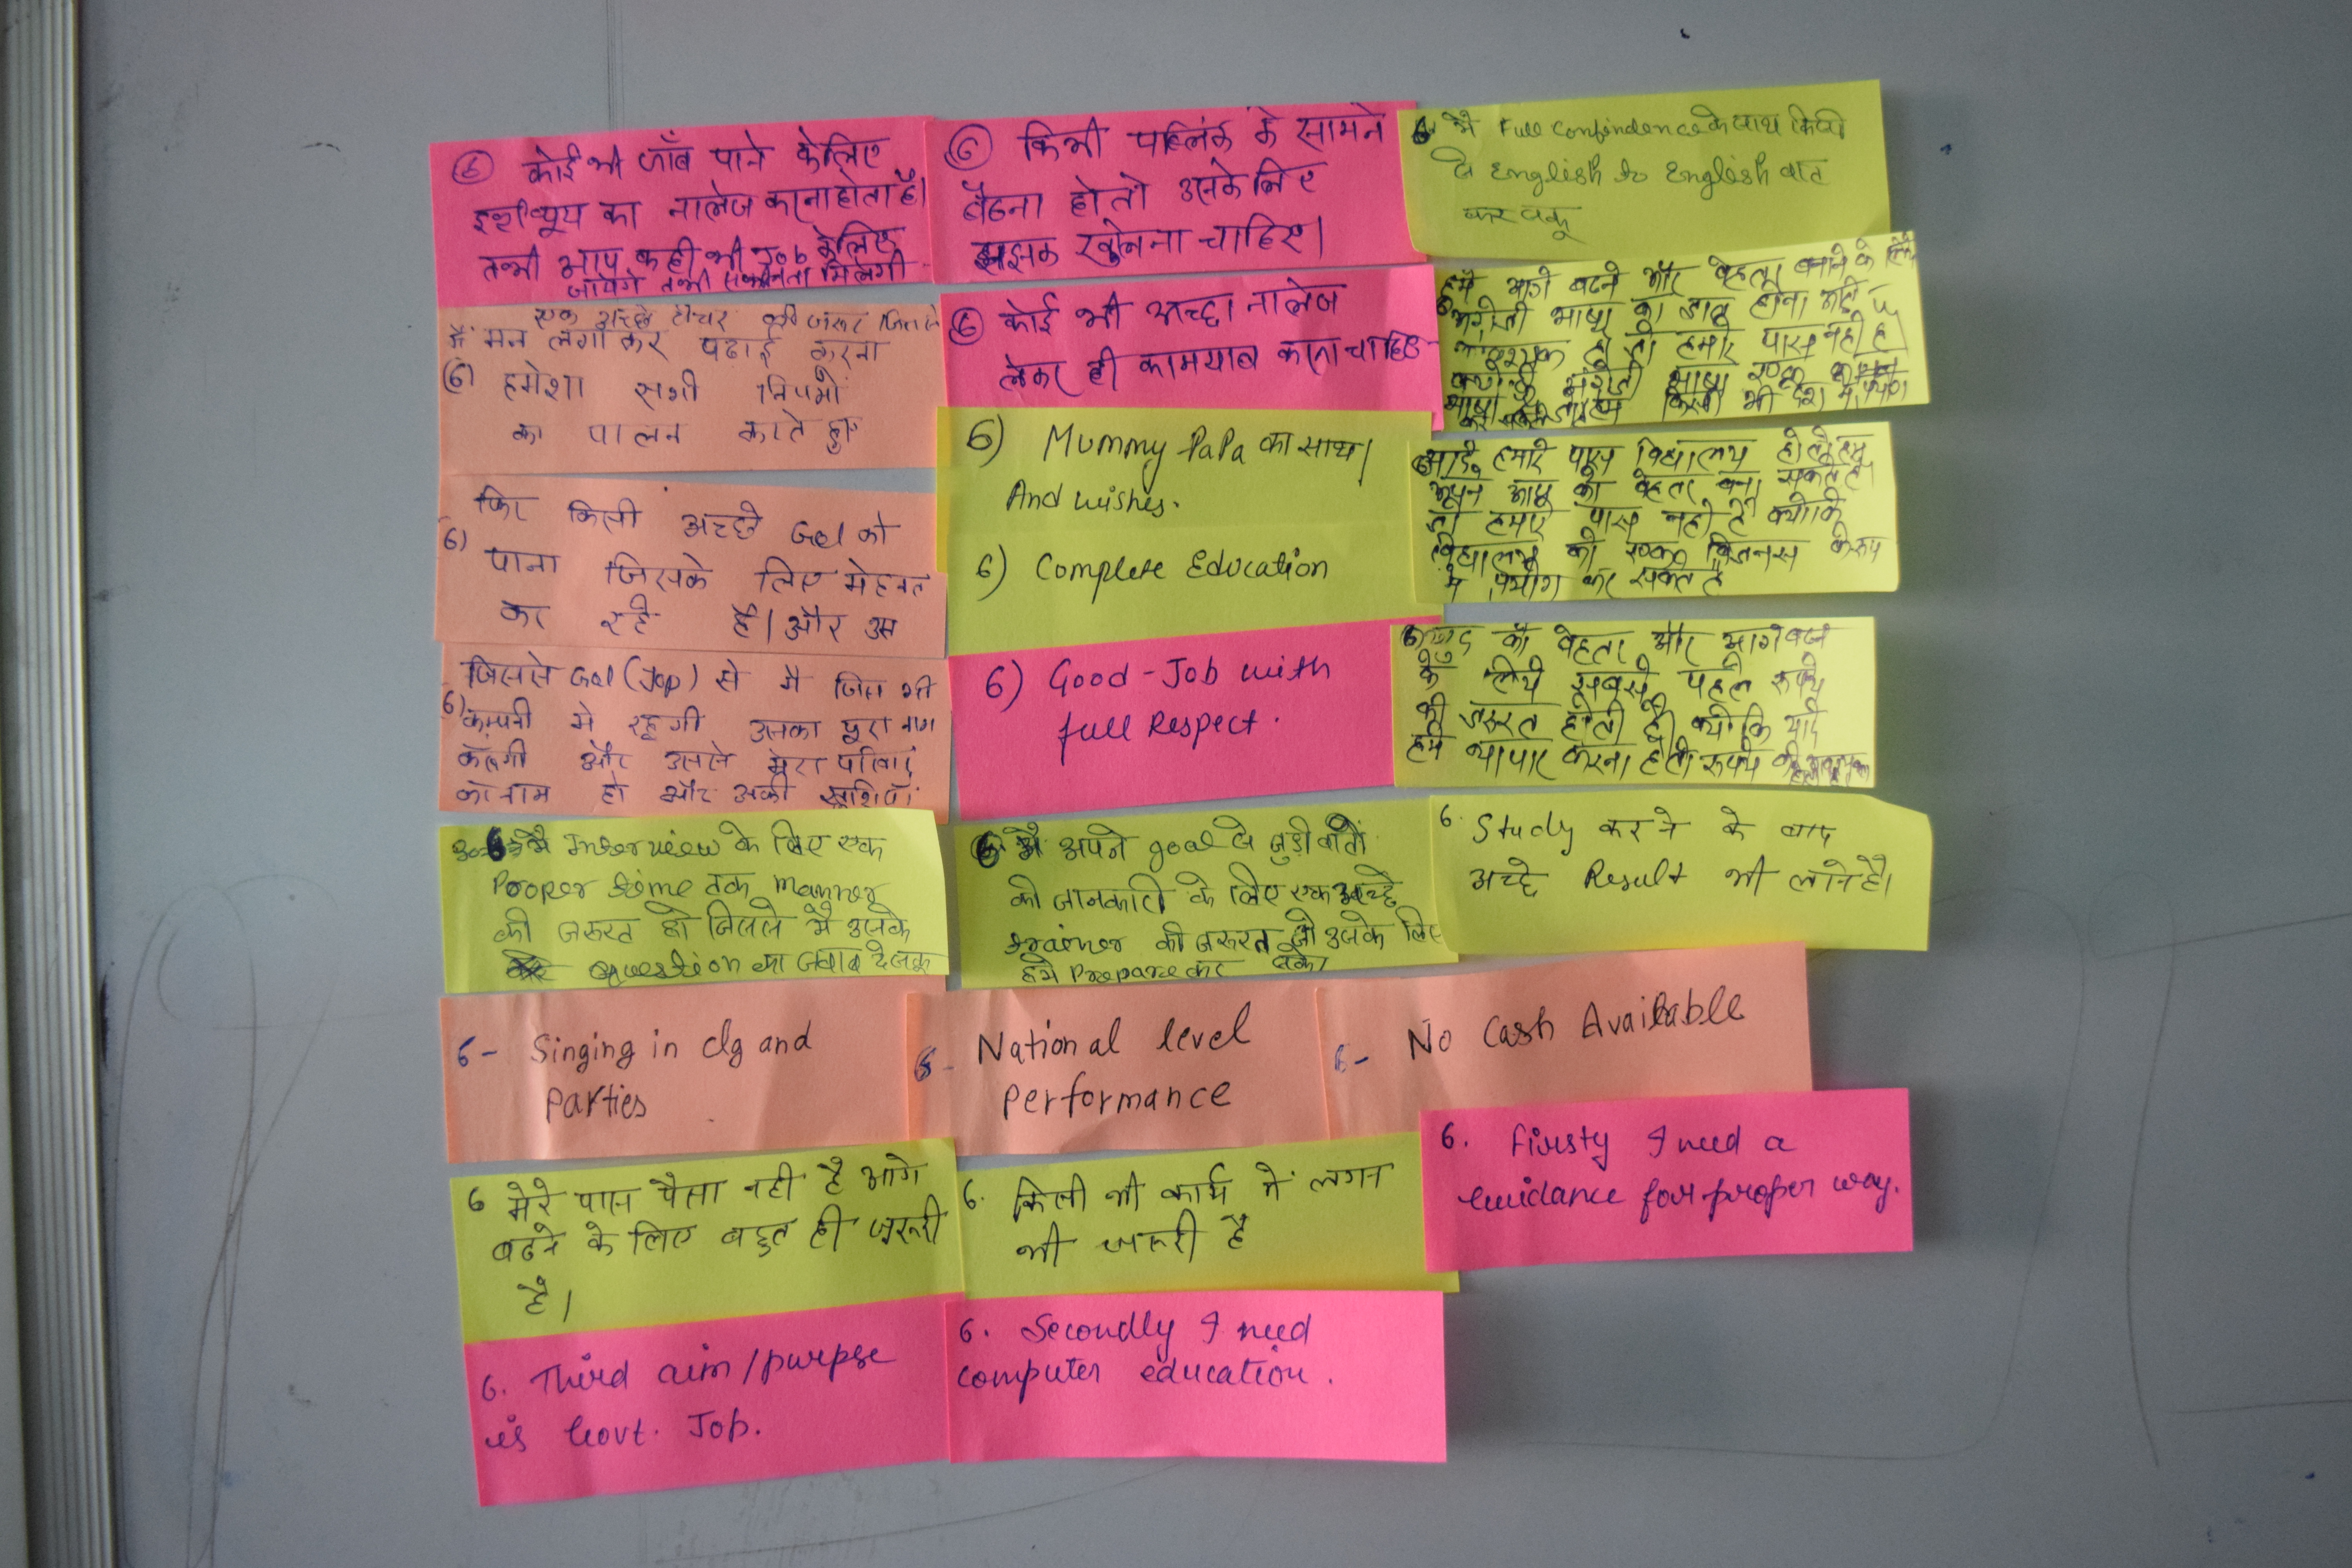 ⑥ कोई भी जॉब पाने केलिए
इन्टरव्यूय का नालेज करनाहोता है।
तभी आप कही भी Job केलिए
जायेगे तभी सफलता मिलेगी
⑥ किसी पब्लिक के सामने
बैठना हो तो उसके लिए
झझक खोलना चाहिए।
6. मै Full Confindence के साथ किसी
से English to English बात
कर सकू
एक अच्छे टीचर की जरूर जिससे
मैं मन लगा कर पढाई करना
(6) हमेशा सभी नियमो
का पालन करते हुए
⑥ कोई भी अच्छा नालेज
लेकर ही कामयाब करना चाहिए
हमे आगे बढने और बेहतर बनाने के लिये
अंग्रेजी भाषा का होना
हमारे पास नही है
अंग्रेजी भाषा
किसी भी देश मे प्रयोग
कर सकते
6) Mummy PaPa का साथ।
And wishes.
6) Complete Education
फिर किसी अच्छे Gol को
6) पाना जिसके लिए मेहनत
कर रहे है। और उस
6. यदि हमारे पास विद्यालय हो तो हम
अपने आप को बेहतर बना सकते है
जो हमारे पास नही है क्योकि
विद्यालय को एक बिजनस के रूप
मे प्रयोग कर सकते है
जिससे Gol (Jop) से मै जिस भी
6) कम्पनी मे रहूगी उसका पूरा नाम
करूगी और उससे मेरा परिवार
का नाम हो और उनकी खुशियाँ
6) Good-Job with
full Respect.
6) खुद को बेहतर और आगे बढने
के लिये सबसे पहले रूपये
की जरूरत होती है। क्योकि यदि
हमे व्यापार करना हो तो रूपये की आवश्यकता
6 मै Interview के लिए एक
Prooper time तक manner
की जरूरत हो जिससे मै उसके
question का जवाब दे सकू
6. मै अपने goal से जुड़ी बातों
की जानकारी के लिए एक अच्छे
trainer की जरूरत जो उसके लिए
हमे Prepare कर सके।
6. Study करने के बाद
अच्छे Result भी लाने है।
6- Singing in clg and
Parties
6- National level
Performance
6- No Cash Available
6 मेरे पास पैसा नही है आगे
बढने के लिए बहुत ही जरूरी
है।
6. किसी भी कार्य में लगन
भी जरूरी है
6. Firsty I need a
Guidance for proper way.
6. Third aim/purpse
is Govt. Job.
6. Secondly I need
computer education.